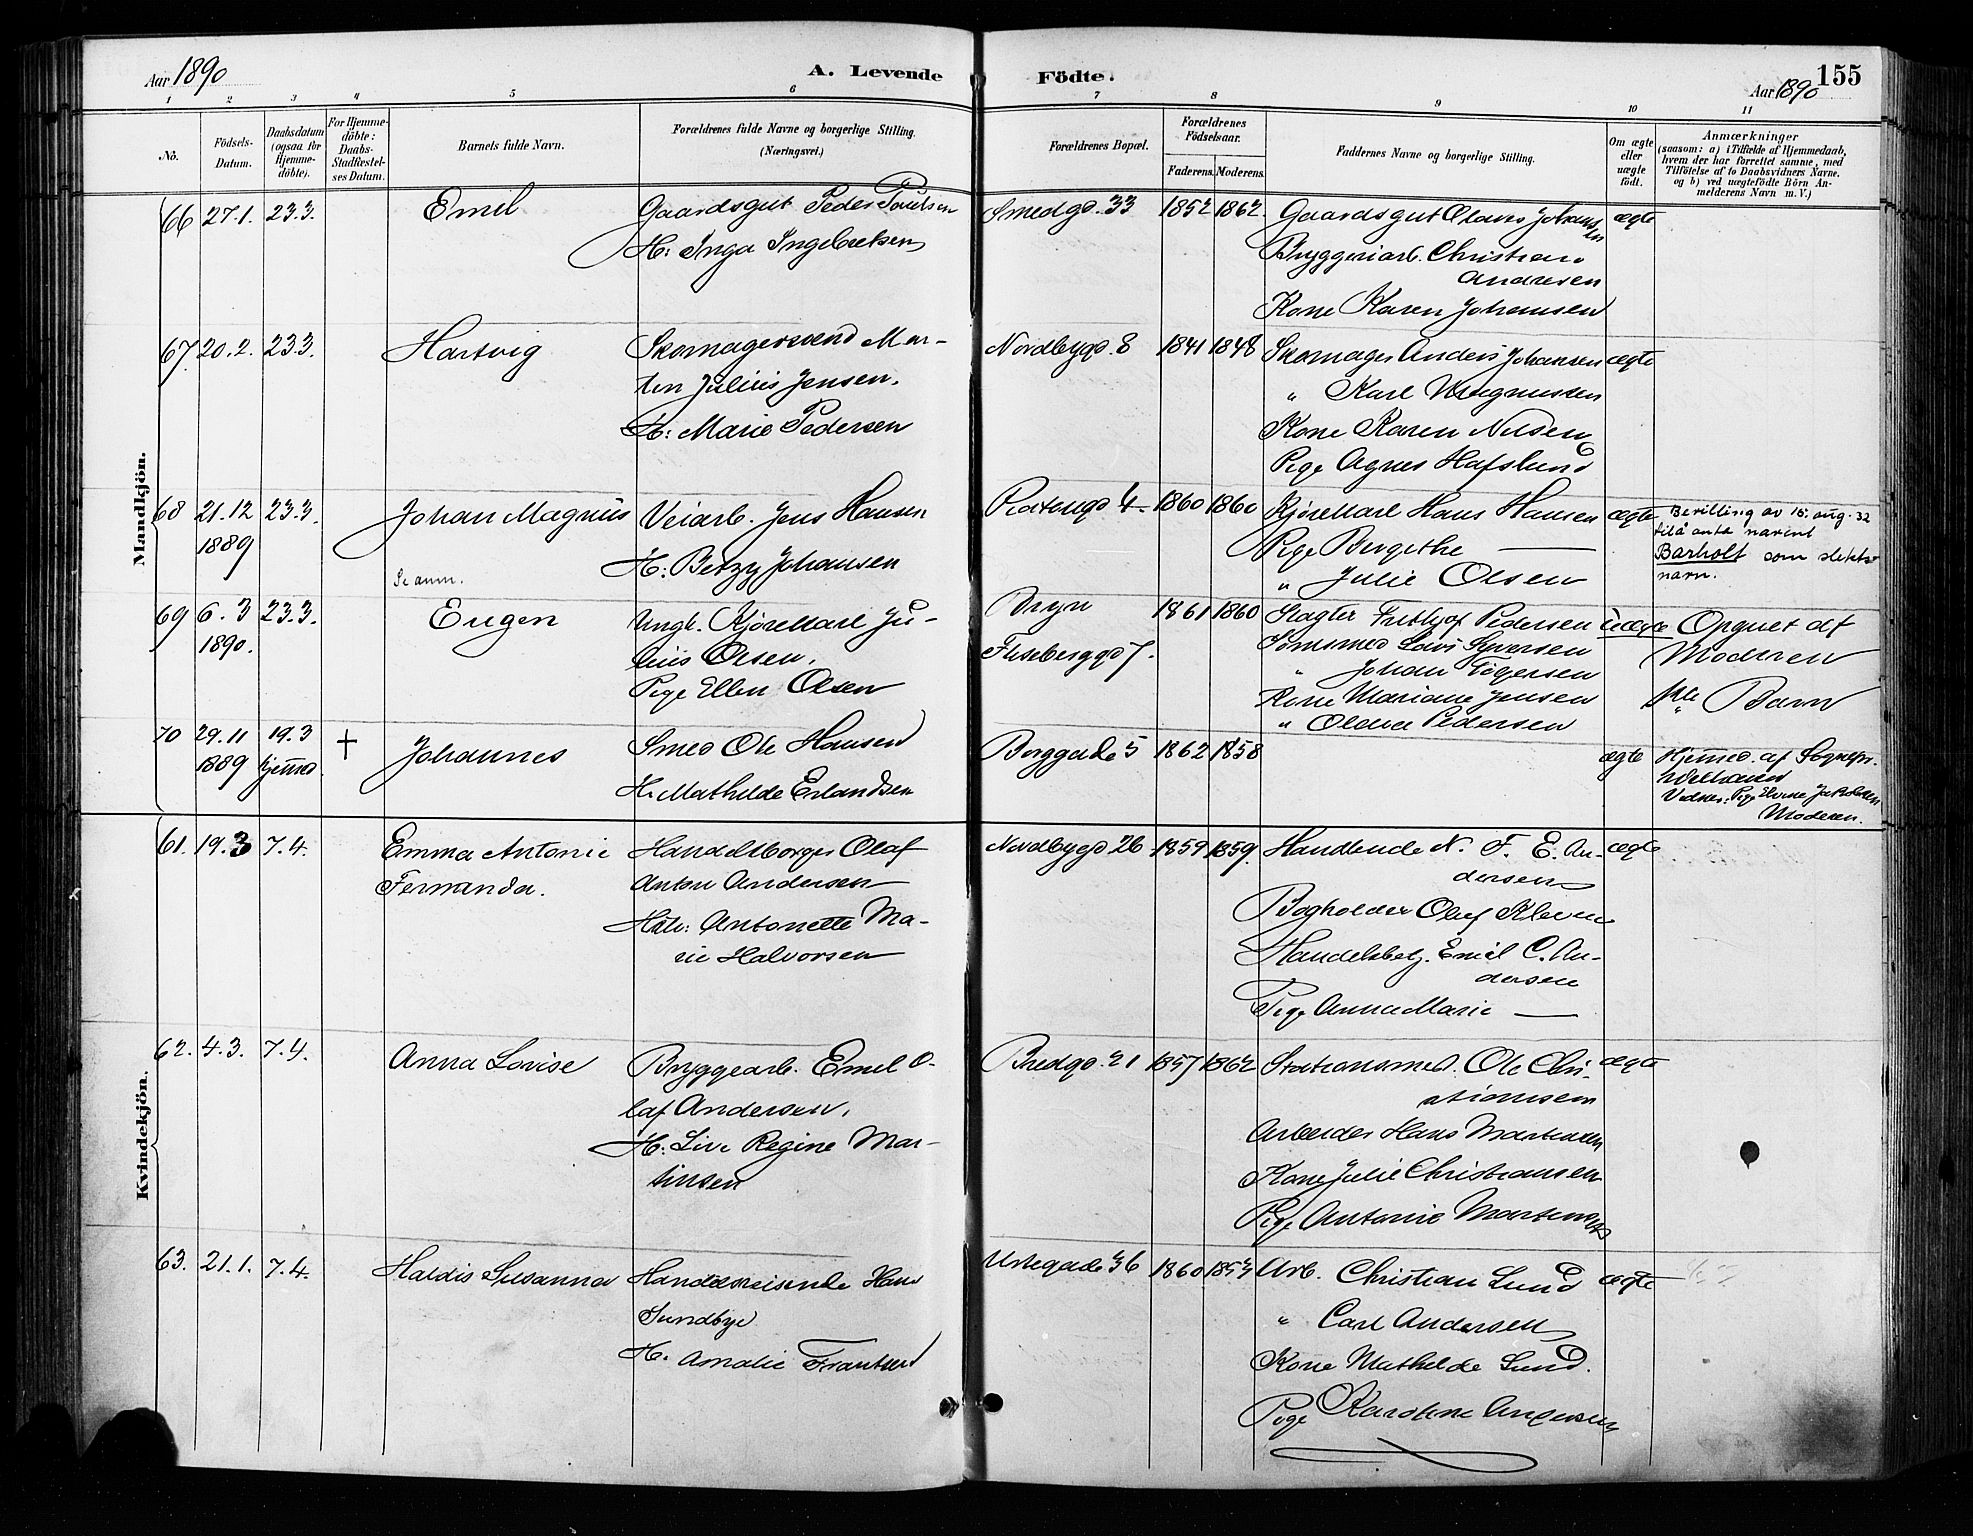 Aar 1890
A. Levende
Födte.
Aar 1890
155
1 2 3 4 5 6 7 8 9 10 11
No.
Födsels-
Datum.
Daabsdatum
(ogsaa for
Hjemme-
döbte).
For Hjemme-
döbte:
Daabs-
Stadfæstel-
ses Datum.
Barnets fulde Navn.
Forældrenes fulde Navne og borgerlige Stilling.
(Næringsvei.)
Forældrenes Bopæl.
Forældrenes
Födselsaar.
Faderens. Moderens.
Faddernes Navne og borgerlige Stilling.
Om ægte
eller
uægte
födt.
Anmærkninger
(saasom: a) i Tilfælde af Hjemmedaab,
hvem der har forrettet samme, med
Tilföielse af to Daabsvidners Navne.
og b) ved uægtefödte Börn An-
melderens Navn m. V.)
Mandkjön.
66 27.1. 23.3. Emil
Gaardsgut Peder Poulsen
H: Inga Ingebretsen
Smedgd. 33 1852 1862
Gaardsgut Olaus Johansen
Bryggeriarb. Christian
Andresen
Kone Karen Johansen
ægte
67. 20.2. 23.3. Hartvig
Skomagersvend Mar-
tin Julius Jensen.
H: Marie Pedersen
Nordbygd. 8 1841 1848
Skomager Anders Johansen
" Karl Magnussen
Kone Karen Nilsen
Pige Agnes Hafslund
ægte
68 21.12 23.3. Johan Magnus
1889
Se anm.
Veiarb. Jens Hansen
H: Betzy Johansen
4 1860 1860
Kjørekarl Hans Hansen
Pige Bergithe —
" Julie Olsen
ægte
Bevilling av 15. aug. 32
til å anta navnet
Barholt som slekts-
navn.
69 6.3 23.3. Eugen
1890.
Ungk. Kjørekarl Ju-
lius Olsen.
Pige Ellen Olsen
Bryn
Fliseberggd 7.
1861 1860
Slagter Frithjof Pedersen
Sømsmed Lovis Syversen
" Johan Tøgersen
Kone Mariane Jensen
" Oldine Pedersen
uægte
Opgivet af
Moderen
Barn
70 29.11 19.3 † Johannes
1889 hjemmed.
Smed Ole Hansen
H. Mathilde Erlandsen
Borggade 5 1862 1858
ægte
Hjemmed. af Sognepr.
Vidner: Pige Elvine Jakobsen
Moderen.
Kvindekjön.
61. 19.3 7.4. Emma Antonie
Fernanda.
Handelsborger Olaf
Anton Andersen
Hstr: Antonette Ma-
rie Halvorsen
Nordbygd 26 1859 1859.
Handlende N. F. E. An-
dersen
Bogholder Oluf Kleven
Handelsbetj. Emil C. An-
dersen
Pige Anna Marie —
ægte
62. 4.3. 7.4. Anna Lovise
Bryggearb. Emil O-
laf Andersen,
H: Live Regine Mar-
tinsen
Bredgd. 21 1857 1862
Stationsmed. Ole Chri-
stiansen
Arbeider Hans Martinsen
Kone Julie Christiansen
Pige Antonie Martinsen
ægte
63. 21.1. 7.4. Haldis Susanna
Handelsreisende Hans
Sundbye
H. Amalie Frantsen
Urtegade 36 1860 1853
Arb. Christian Lund
" Carl Andersen
Kone Mathilde Lund.
Pige Karoline Andersen
ægte